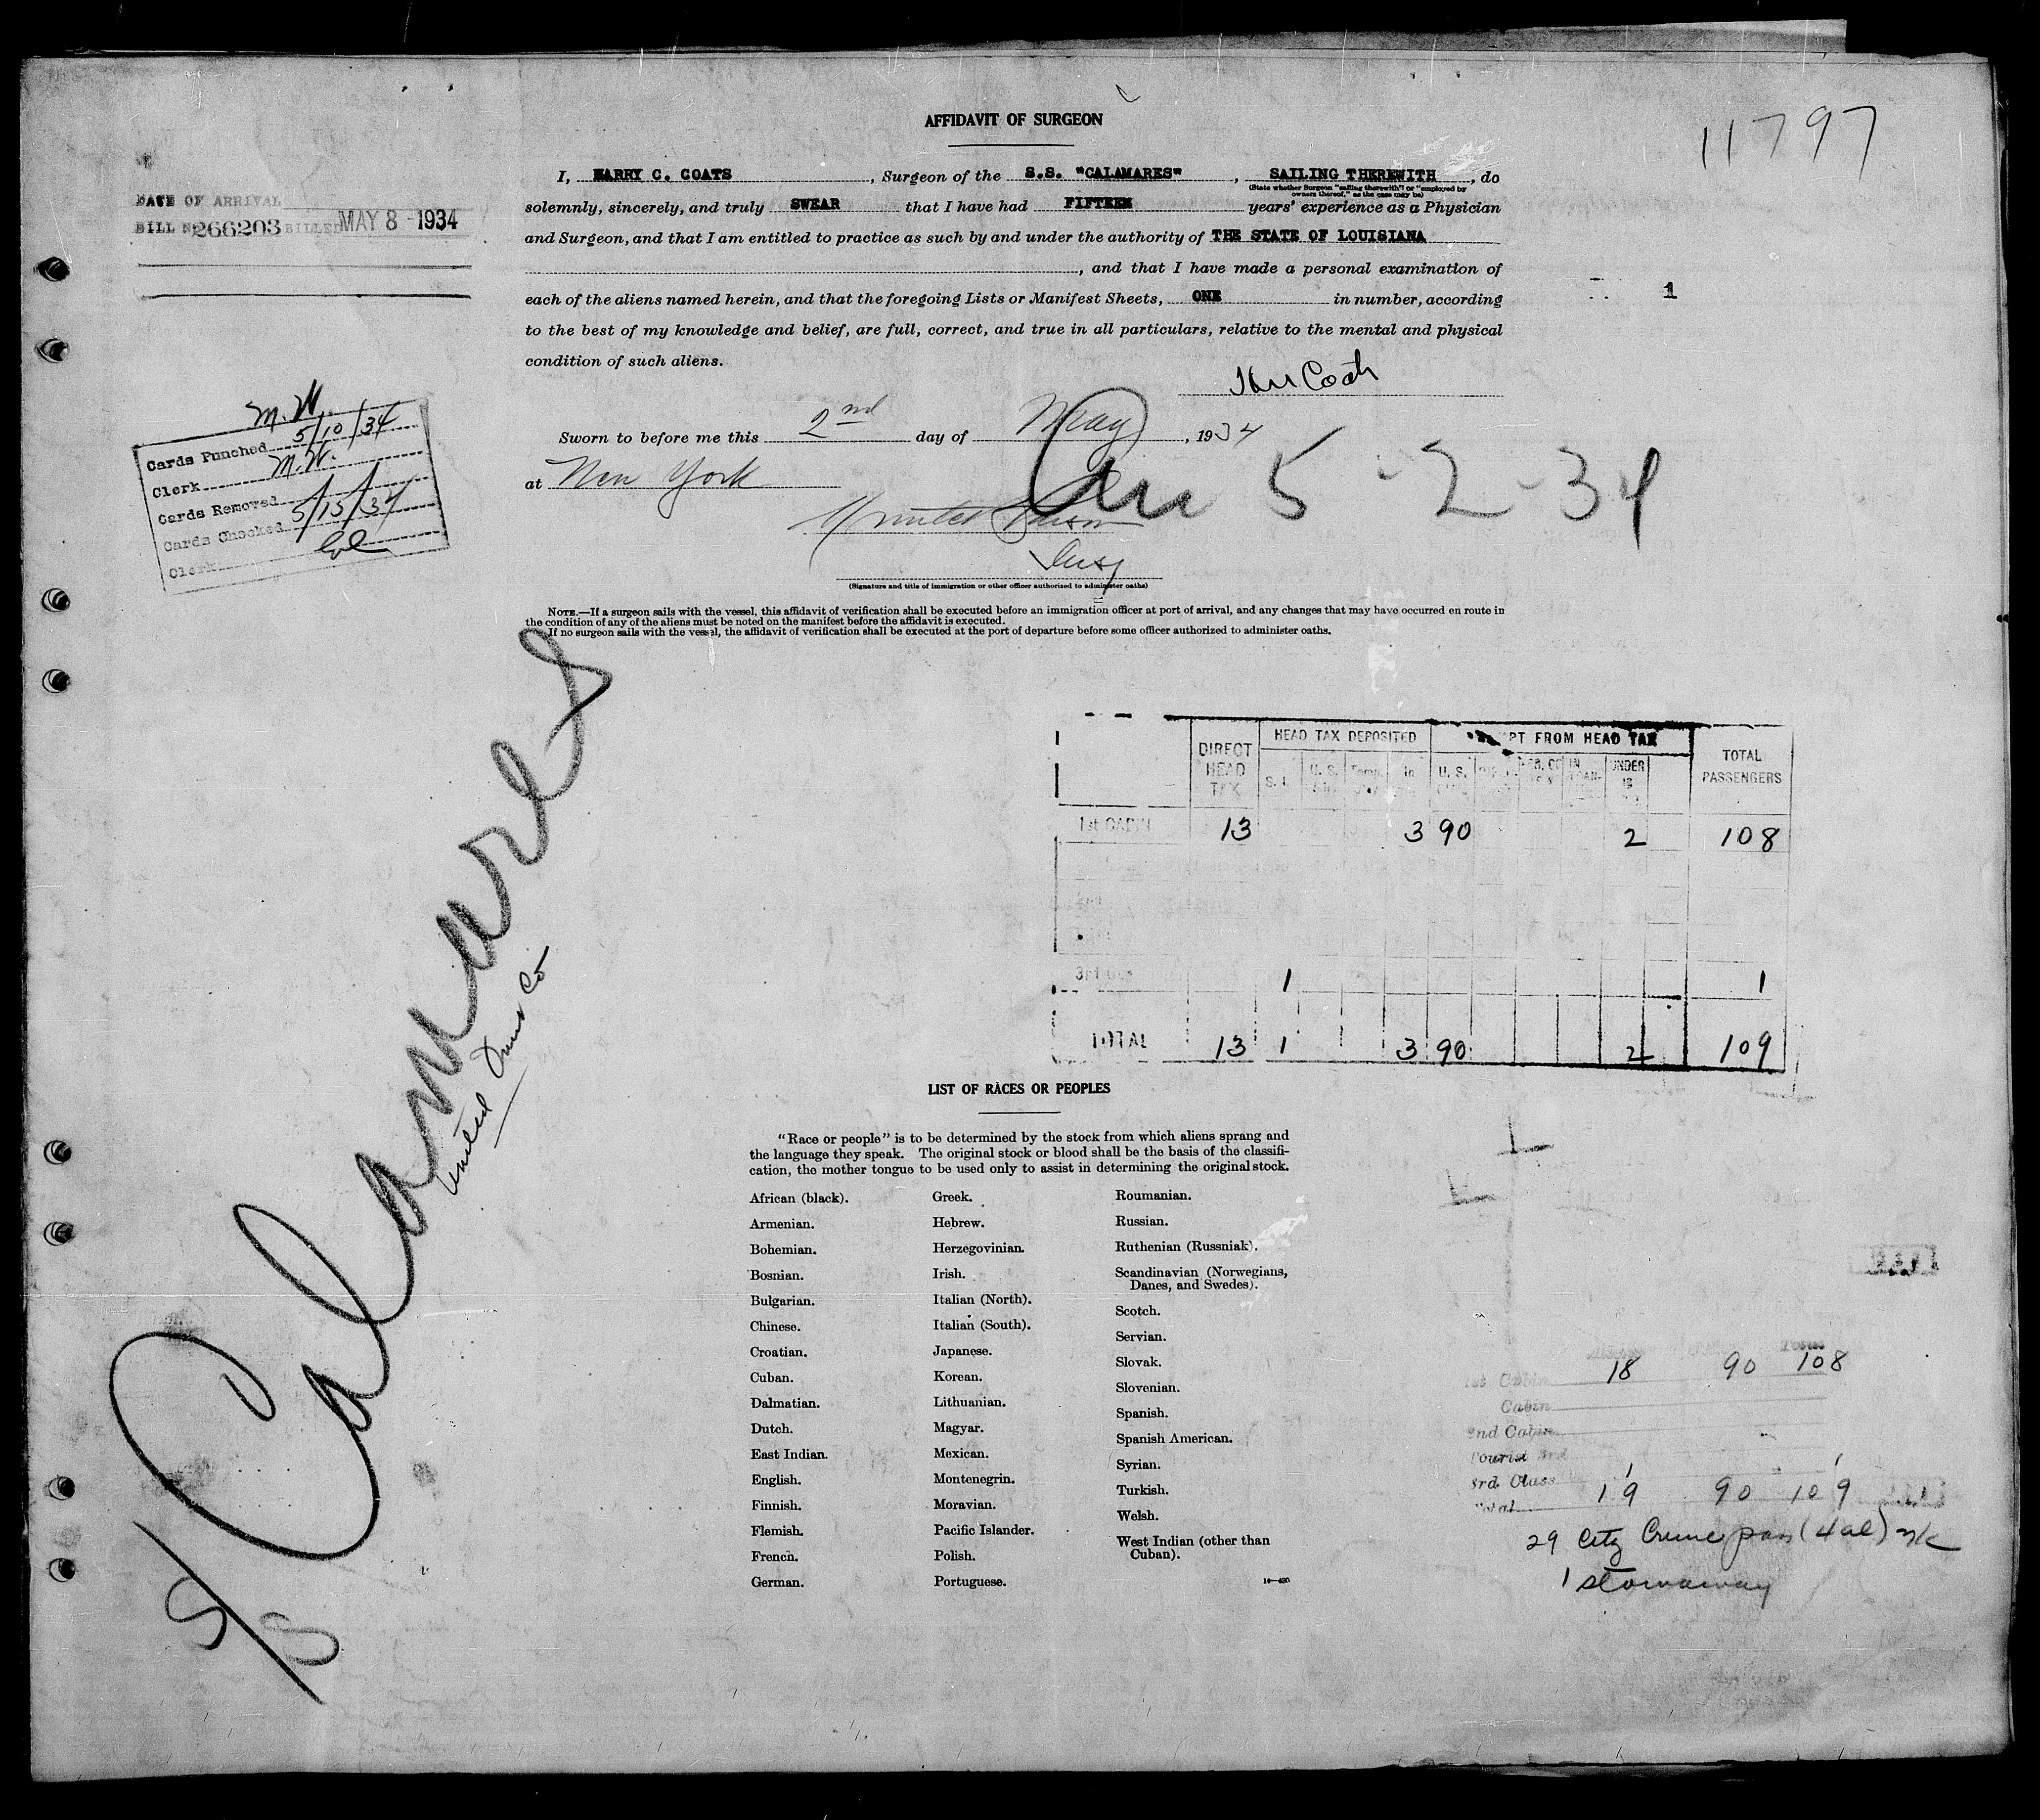 11797
AFFIDAVIT OF SURGEON
DATE OF ARRIVAL
BILL No 266203 BILLED MAY 8 - 1934
I, HARRY C. COATS, Surgeon of the S.S. "CALAMARES", SAILING THEREWITH, do
(State whether Surgeon "sailing therewith" or "employed by
owners thereof," as the case may be)
solemnly, sincerely, and truly SWEAR that I have had FIFTEEN years' experience as a Physician
and Surgeon, and that I am entitled to practice as such by and under the authority of THE STATE OF LOUISIANA
, and that I have made a personal examination of
each of the aliens named herein, and that the foregoing Lists or Manifest Sheets, ONE in number, according
1
to the best of my knowledge and belief, are full, correct, and true in all particulars, relative to the mental and physical
condition of such aliens.
Coats
Sworn to before me this 2nd day of May, 1934
at New York
5-2-34
Insp
(Signature and title of immigration or other officer authorized to administer oaths)
M.W.
Cards Punched 5/10/34
Clerk M.W.
Cards Removed
Cards Checked 5/15/34
Clerk
NOTE.—If a surgeon sails with the vessel, this affidavit of verification shall be executed before an immigration officer at port of arrival, and any changes that may have occurred en route in
the condition of any of the aliens must be noted on the manifest before the affidavit is executed.
If no surgeon sails with the vessel, the affidavit of verification shall be executed at the port of departure before some officer authorized to administer oaths.
S/S Calamares
United Fruit Co
DIRECT HEAD TAX
HEAD TAX DEPOSITED
EXEMPT FROM HEAD TAX
TOTAL PASSENGERS
S. I. U. S. Temp. In U. S. IN TRAN- UNDER 16
1st CABIN 13 3 90 2 108
3rd 1 1
TOTAL 13 1 3 90 2 109
LIST OF RACES OR PEOPLES
"Race or people" is to be determined by the stock from which aliens sprang and
the language they speak. The original stock or blood shall be the basis of the classifi-
cation, the mother tongue to be used only to assist in determining the original stock.
African (black).
Armenian.
Bohemian.
Bosnian.
Bulgarian.
Chinese.
Croatian.
Cuban.
Dalmatian.
Dutch.
East Indian.
English.
Finnish.
Flemish.
French.
German.
Greek.
Hebrew.
Herzegovinian.
Irish.
Italian (North).
Italian (South).
Japanese.
Korean.
Lithuanian.
Magyar.
Mexican.
Montenegrin.
Moravian.
Pacific Islander.
Polish.
Portuguese.
Roumanian.
Russian.
Ruthenian (Russniak).
Scandinavian (Norwegians,
Danes, and Swedes).
Scotch.
Servian.
Slovak.
Slovenian.
Spanish.
Spanish American.
Syrian.
Turkish.
Welsh.
West Indian (other than
Cuban).
Total
1st Cabin 18 90 108
Cabin
2nd Cabin
Tourist 3rd
3rd Class 1 1
Total 19 90 109
29 City Cruise pass (4 al)
1 stowaway